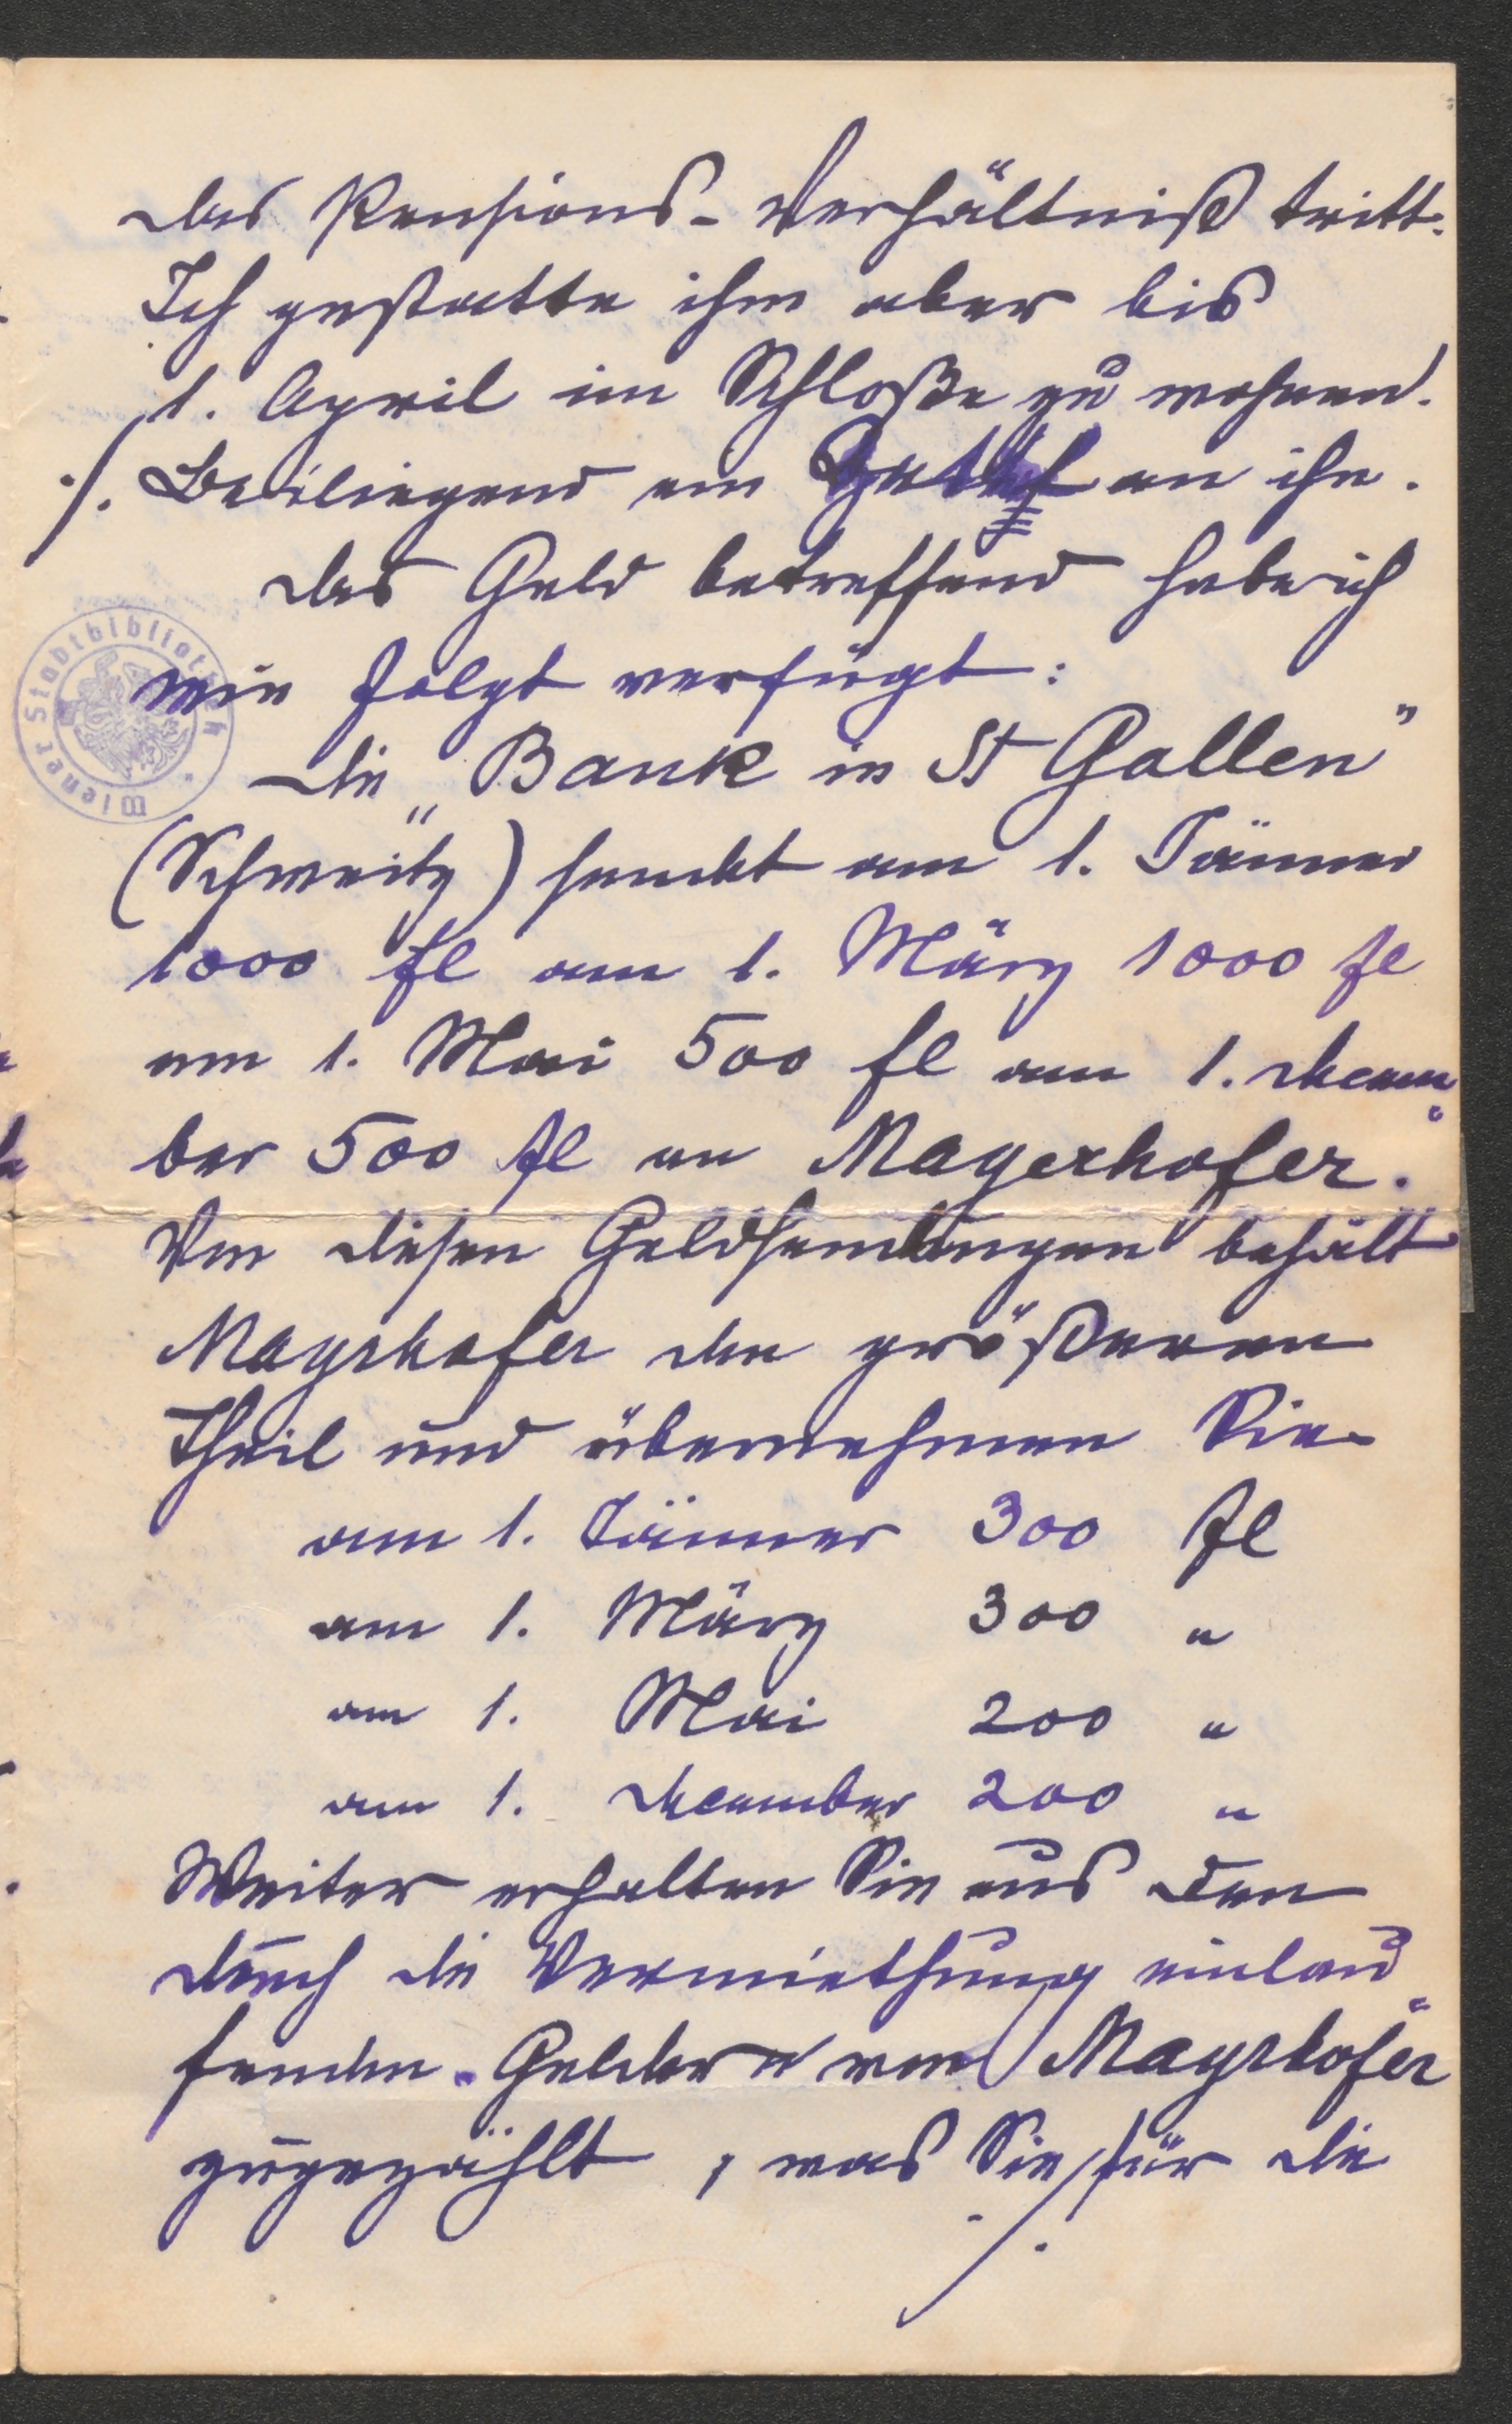 das Pensions-Verhältniß tritt.
Ich gestatte ihm aber bis
1. April im Schloße zu wohnen.
./. Beiliegend ein an ihn.
Das Geld betreffend habe ich
wie folgt verfügt:
Die „Bank in St Gallen"
(Schweitz) sendet am 1. Jänner
1000 fl am 1. März 1000 fl
am 1. Mai 500 fl am 1. Decem„
ber 500 fl an Mayerhofer.
Von diesen Geldsendungen behält
Mayrhofer den größeren
Theil und übernehmen Sie
am 1. Jänner 300 fl
am 1. März 300 "
am 1. Mai 200 "
am 1. December 200 "
Weiter erhalten Sie aus den
durch die Vermiethung einlau„
fenden Geldern von Mayrhofer
zugezählt, was Sie für die
./.
Wiener Stadtbibliothek